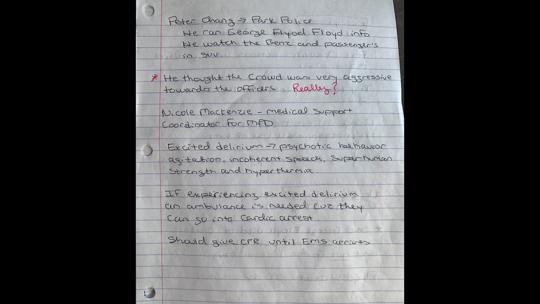 Peter Chang → Park Police
We ran George Floyd info
We watch the Benz and passenger's
in SUV
* He thought the Crowd was very aggressive
towards the officers Really?
Nicole Mackenzie - medical Support
Coordinator for MPD
Excited delirium → psychotic behavior
agitation, incoherent speech, Superhuman
Strength and hyperthermia
If experiencing excited delirium
an ambulance is needed cuz they
can go into cardic arrest
Should give CPR until EMS